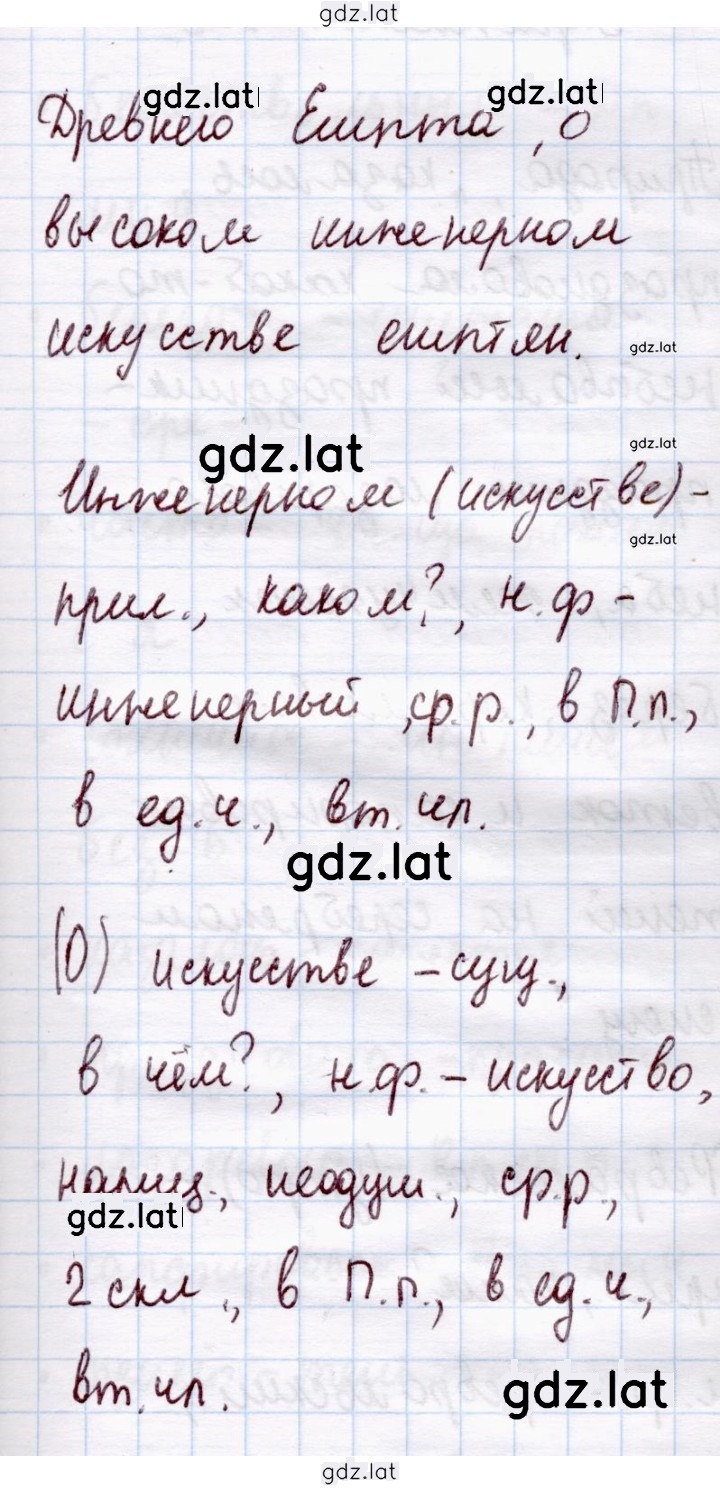 gdz.lat
gdz.lat gdz.lat
Древнего Египта, о
высоком инженерном
искусстве египтян. gdz.lat
gdz.lat gdz.lat
Инженерном (искусстве) -
gdz.lat
прил., каком?, н.ф -
инженерный, ср.р., в П.п.,
в ед.ч., вт.чл.
gdz.lat
(О) искусстве - сущ.,
в чём?, н.ф. - искусство,
нариц., неодуш., ср.р.,
gdz.lat
2 скл., в П.п., в ед.ч.,
вт.чл. gdz.lat
gdz.lat